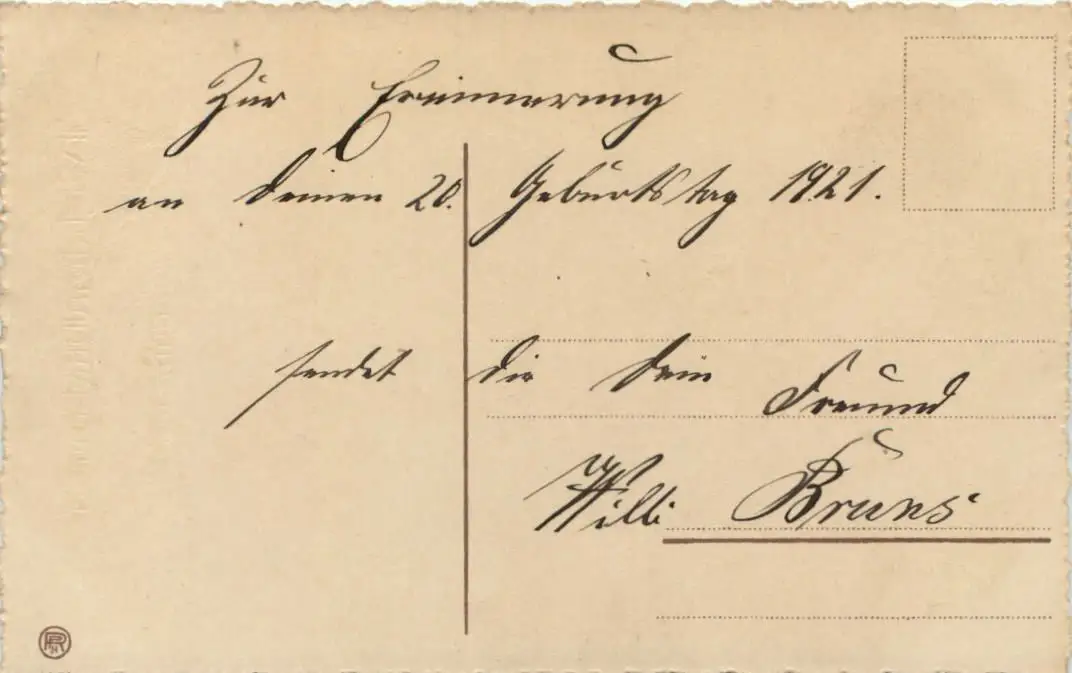 Zur Erinnerung
an Deinen 20. Geburtstag 1921.
sendet Dir Dein Freund
Willi Bruns